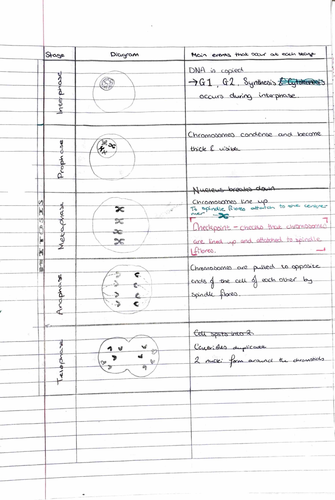 Stage Diagram Main events that occur at each stage
Interphase
DNA is copied
→ G1, G2, Synthesis & Cytokinesis
occurs during interphase.
Prophase
Chromosomes condense and become
thick & visible.
Nucleus breaks down
MITOSIS
Metaphase
Chromosomes line up
To spindle fibres attach to the
Checkpoint - checks that chromosomes
are lined up and attached to spindle
fibres.
Anaphase
Chromosomes are pulled to opposite
ends of the cell of each other by
spindle fibres.
Telophase
Cell splits into 2
Centrioles duplicate
2 nuclei form around the chromatids